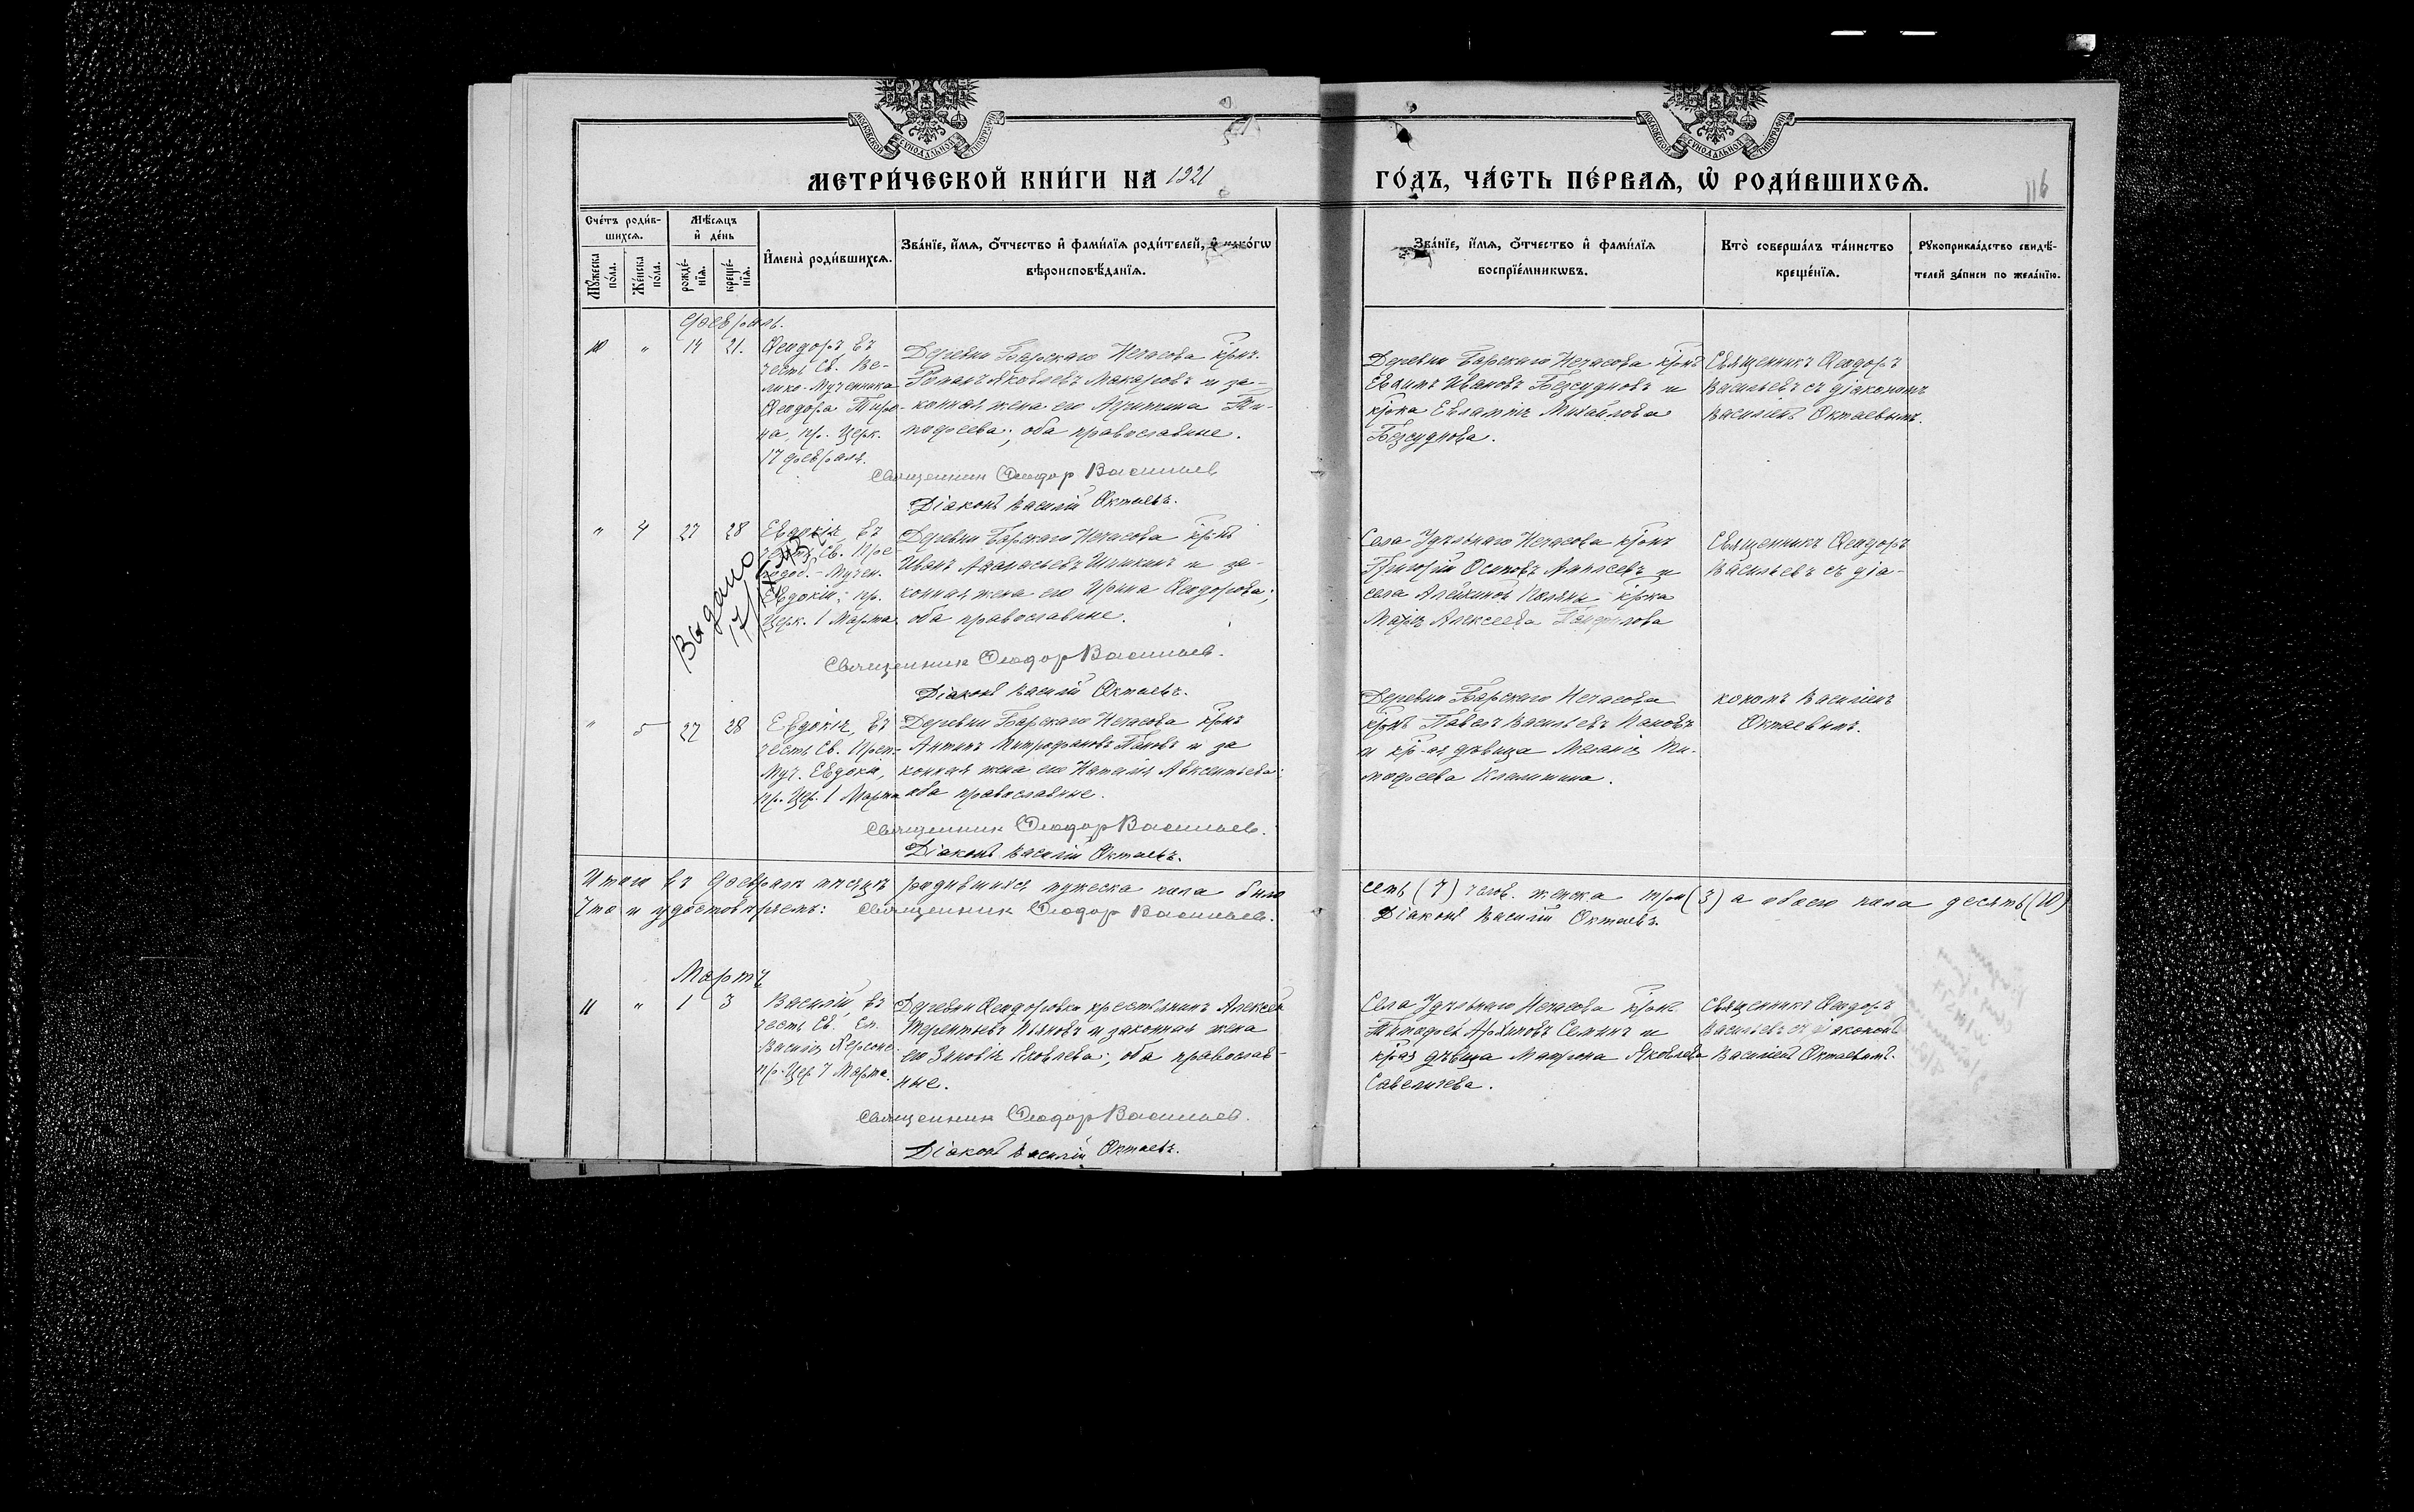 МЕТРИ́ЧЕСКОЙ КНИ́ГИ НА 1921 ГО́ДЪ, ЧА́СТЬ ПЕ́РВАѦ, Ѡ҆ РОДИ́ВШИХСѦ.
116
Сче́тъ роди́в-
шихсѧ.
Мꙋ́жеска по́ла.
Же́нска по́ла.
Мѣ́сѧцъ
и҆ де́нь
рожде́-
нїѧ.
креще́-
нїѧ.
И҆мена̀ роди́вшихсѧ.
Зва́нїе, и҆́мѧ, ѻ҆́тчество и҆ фами́лїѧ роди́телей, и҆ како́гѡ
вѣроисповѣ́данїѧ.
Зва́нїе, и҆́мѧ, ѻ҆́тчество и҆ фами́лїѧ
воспрїе́мникѡвъ.
Кто̀ соверша́лъ та́инство
креще́нїѧ.
Рꙋкоприкла́дство свидѣ́-
телей за́писи по жела́нїю.
Февраль.
10 " 19 21.
Ѳеодоръ въ
честь Св. Ве-
лико-Мученика
Ѳеодора Тиро-
на, пр. Церк.
17 февраля.
Деревни Барскаго Нечасова крнъ.
Романъ Яковлевъ Макаровъ и за-
конная жена его Агрипина Ти-
мофеева; оба православные.
Священник Ѳеодор Васильев
Діаконъ Василій Октаевъ.
Деревни Барскаго Нечасова крнъ
Иванов Безсудновъ и
крка Евлампія Михайлова
Безсуднова.
Священникъ Ѳеодоръ
Васильевъ съ діакономъ
Василіемъ Октаевымъ.
" 4 27 28
Евдокія, въ
честь Св. Пре-
подоб.-Мучен.
Евдокіи; пр.
Церк. 1 Марта
Выдано
Деревни Барскаго Нечасова крнъ
Иванъ Аѳанасьевъ Шишкинъ и за-
конная жена его Ирина Ѳеодорова;
оба православные.
Священник Ѳеодор Васильев.
Діаконъ Василій Октаевъ.
Села Удѣльнаго Нечасова крнъ
Григорій Осиповъ и
села Алейкиной Поляны крка
Марія Алексеева
Священникъ Ѳеодоръ
Васильевъ съ діа-
кономъ Василіемъ
Октаевымъ.
" 5 27 28
Евдокія, въ
честь Св. Преп.-
Муч. Евдокіи,
пр. Цер. 1 Марта
Деревни Барскаго Нечасова крнъ
Антипъ Митрофановъ Пановъ и за
конная жена его Наталія Авксентьева;
оба православные.
Священник Ѳеодор Васильев.
Діаконъ Василій Октаевъ.
Деревни Барскаго Нечасова
крнъ Павелъ Васильевъ Пановъ
и кр-ая дѣвица Меланія Ти-
мофеева
Итого въ Февралѣ мѣсяцѣ родившихся мужеска пола было семь (7) челов. женска три (3) а обоего пола десять (10)
Что и удостовѣряемъ: Священник Ѳеодор Васильев. Діаконъ Василій Октаевъ.
Мартъ
11 " 1 3
Василій, въ
честь Св. Еп.
Василія Херсоне.
пр. Цер 7 Марта.
Деревни Ѳеодоровки крестьянинъ Алексѣй
Терентьевъ Пьяновъ и законная жена
его Зиновія Яковлева; оба православ-
ные.
Священник Ѳеодор Васильев.
Діаконъ Василій Октаевъ.
Села Удѣльнаго Нечасова крнъ
Тимофей Архиповъ Семинъ и
кр-ая дѣвица Матрона Яковлева
Савельичева.
Священникъ Ѳеодоръ
Васильевъ съ діакономъ
Василіемъ Октаевымъ.